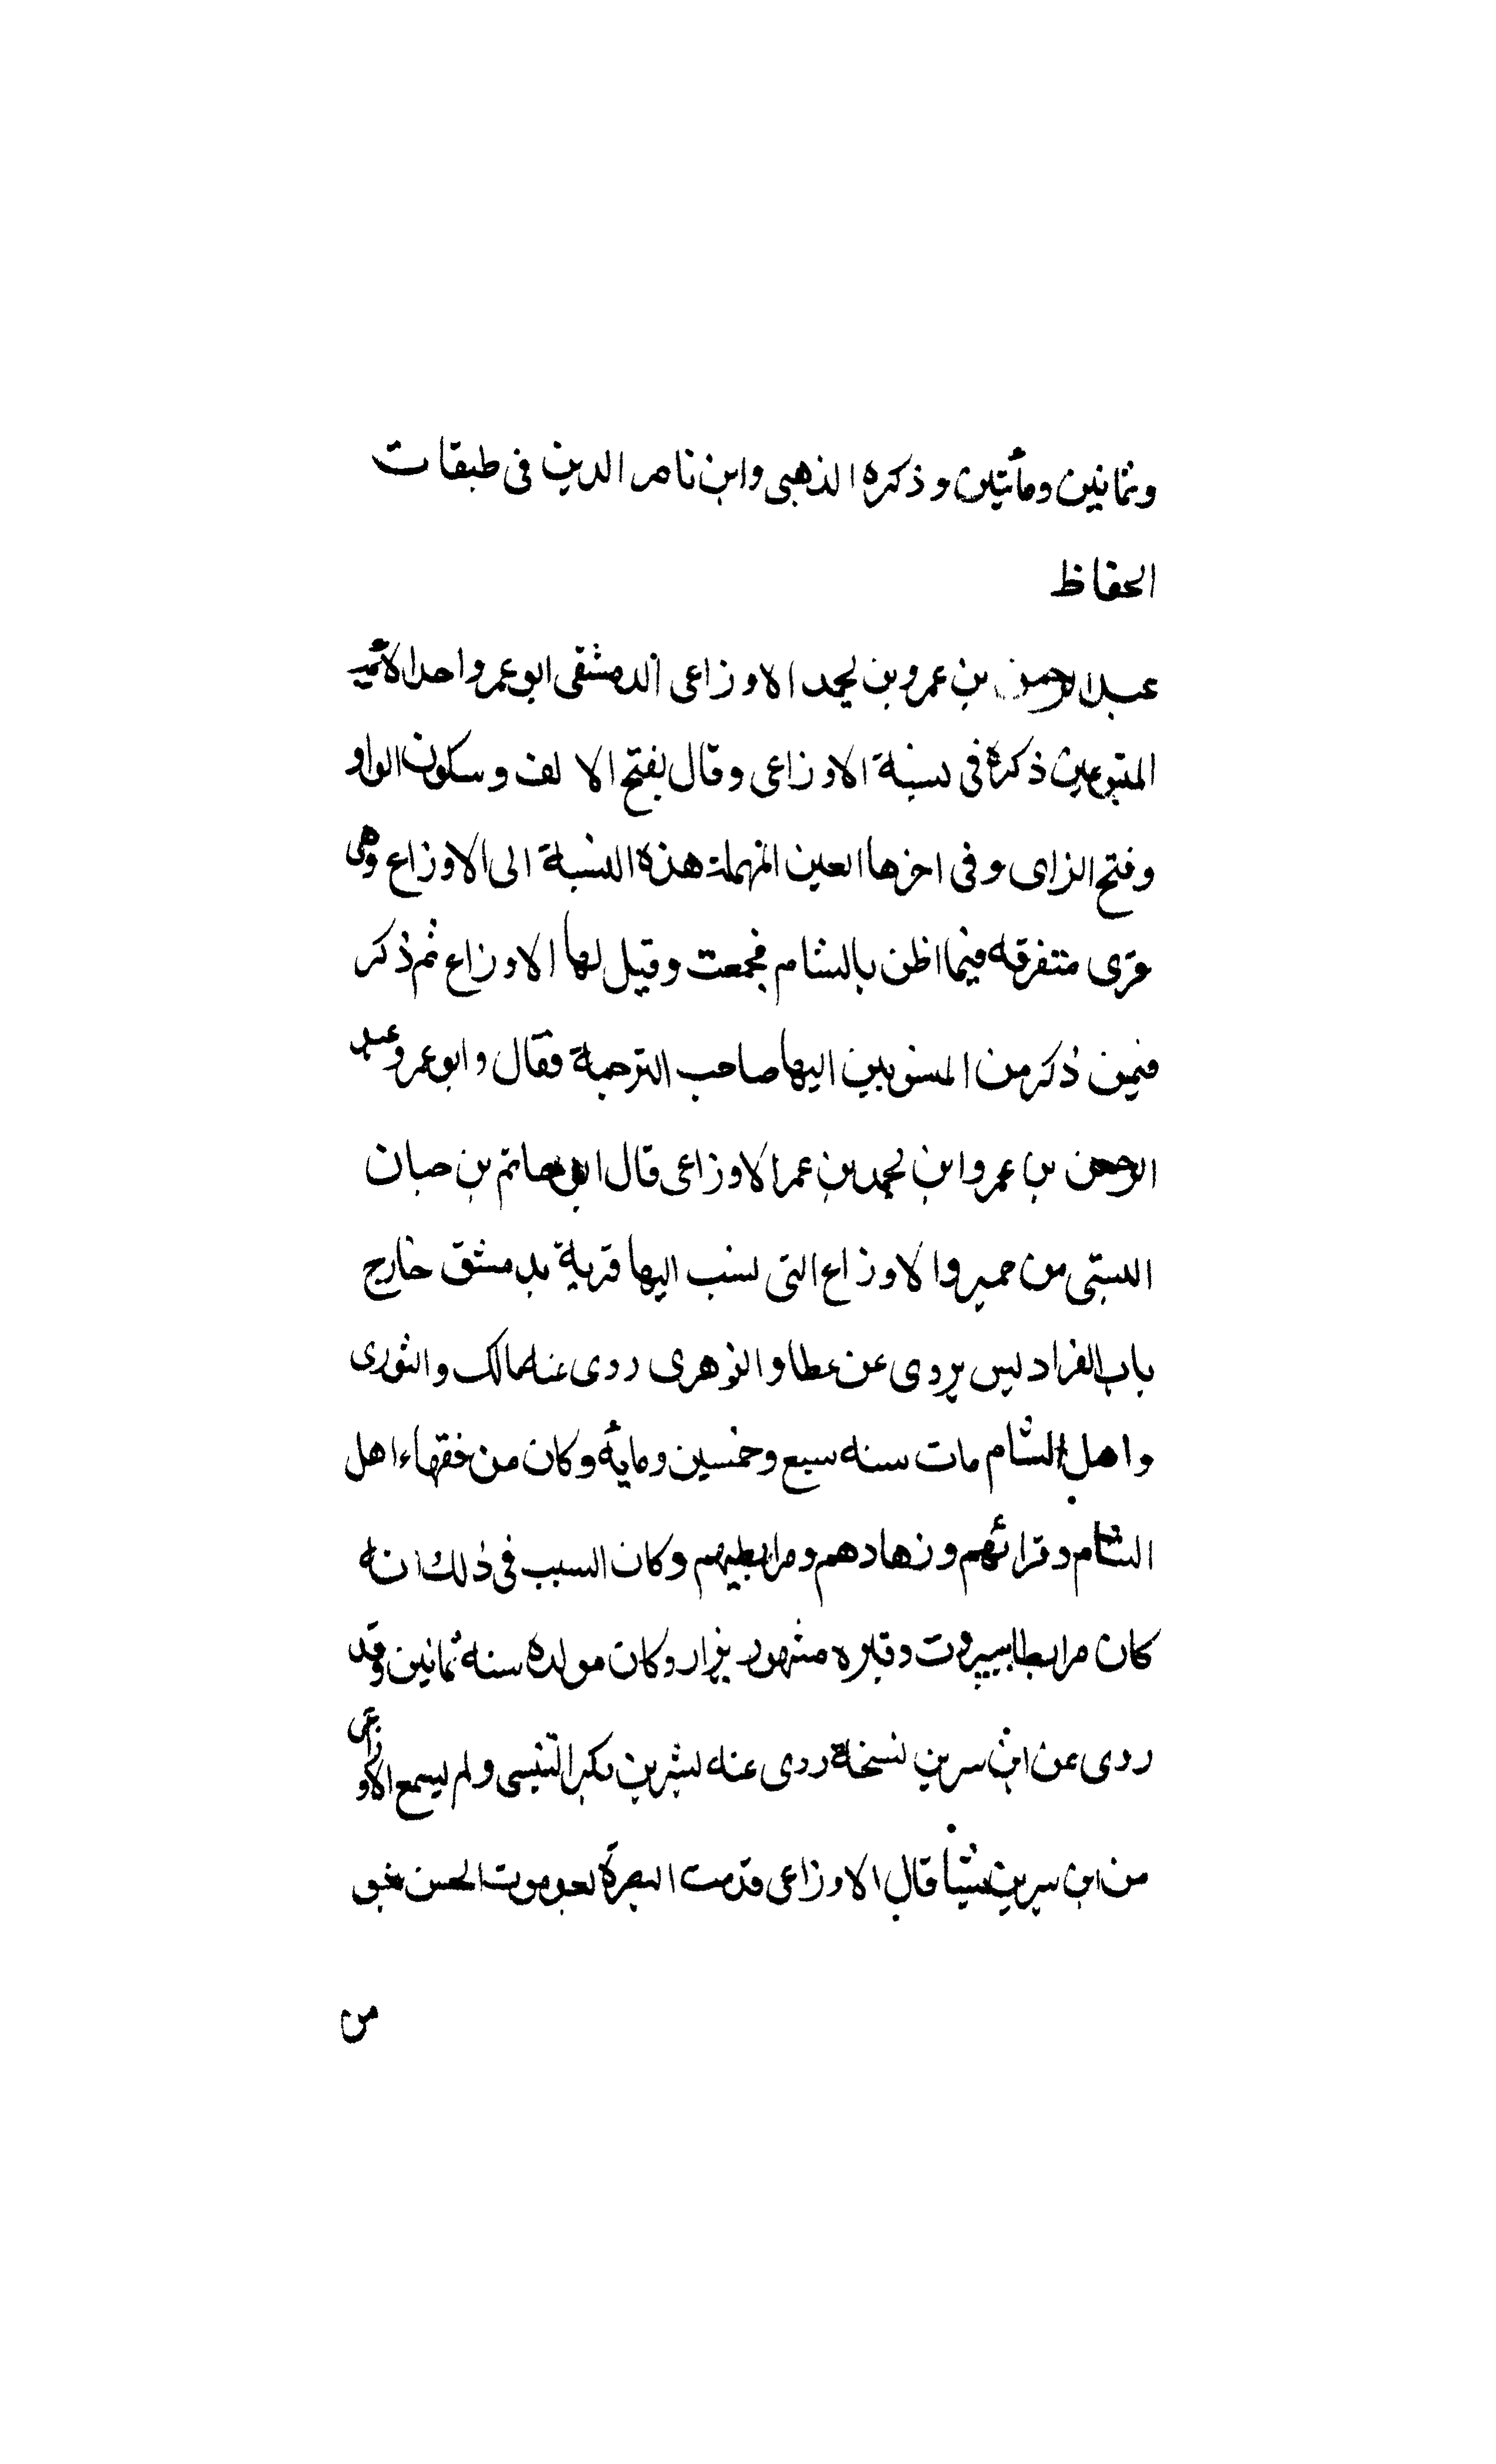 وثمانين ومأتين وذكره الذهبى وابن ناصر الدين فى طبقات
الحفاظ
عبد الرحمن بن عمرو بن يحمد الاوزاعى الدمشقى ابو عمرو احد الائمة
المتبوعين ذكره فى نسبة الاوزاعى وقال بفتح الالف وسكون الواو
وفتح الزاى وفى اخرها العين المهملة هذه النسبة الى الاوزاع وهى
قرى متفرقه فيما اظن بالشام فجمعت وقيل لها الاوزاع ثم ذكر
فيمن ذكر من المنسوبين اليها صاحب الترجمة فقال وابو عمرو عبد
الرحمن بن عمرو ابن يحمد بن عمر الاوزاعى قال ابو حاتم بن حبان
البستى من حمير والاوزاع التى نسب اليها قرية بدمشق خارج
باب الفراديس يروى عن عطا والزهرى روى عنه مالك والثورى
واهل الشام مات سنه سبع وخمسين ومايه وكان من فقهاء اهل
الشام وقرائهم وزهادهم ومرابطيهم وكان السبب فى ذلك انه
كان مرابطا ببيروت وقبره مشهور يزار وكان مولده سنه ثمانين وقد
روى عن ابن سرين نسخة روى عنه بشر بن بكر التنيسى ولم يسمع الاوزاعى
من ابن سيرين شيأ قال الاوزاعى قدمت البصرة بعد موت الحسن بنحو
من